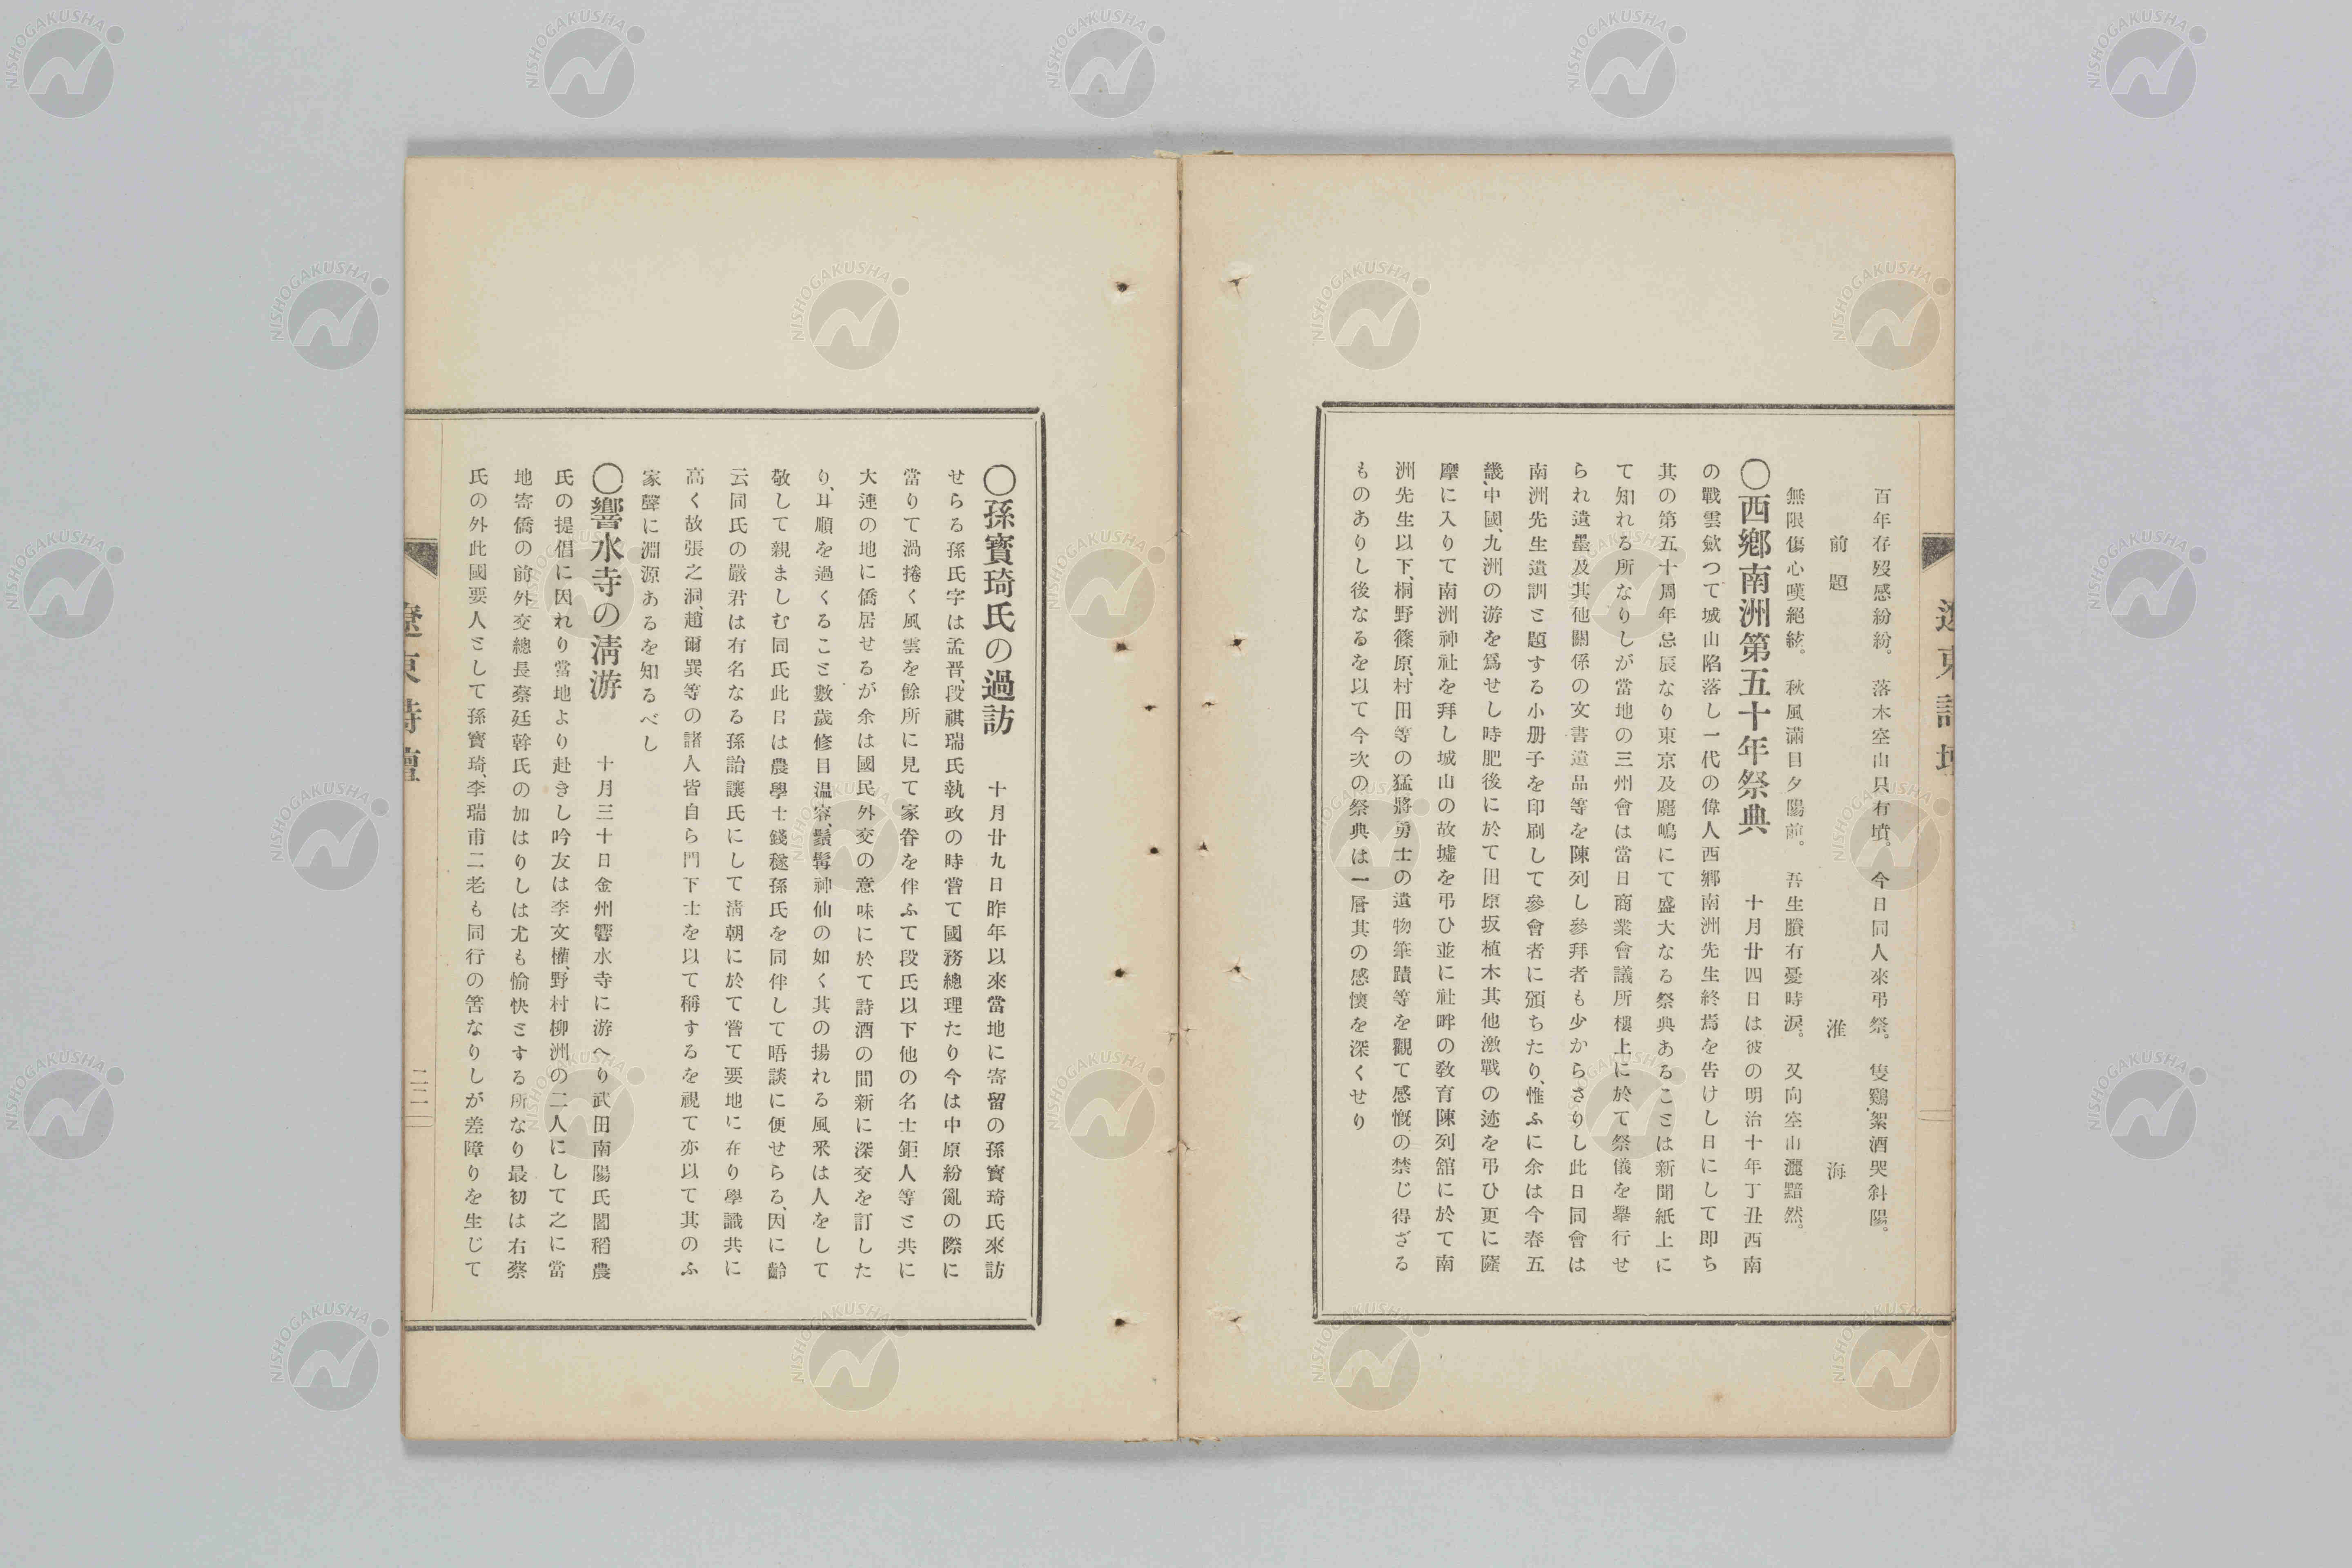 百年存歿感紛紛。落木空山只有墳。今日同人來弔祭。隻鷄絮酒哭斜陽。
前題 淮海
無限傷心嘆絕絃。秋風滿目夕陽前。吾生賸有憂時淚。又向空山灑黯然。
〇西鄕南洲第五十年祭典 十月廿四日は彼の明治十年丁丑西南
の戰雲歛つて城山陷落し一代の偉人西鄕南洲先生終焉を告けし日にして卽ち
其の第五十周年忌辰なり東京及麑嶋にて盛大なる祭典あることは新聞紙上に
て知れる所なりしが當地の三州會は當日商業會議所樓上に於て祭儀を擧行せ
られ遺墨及其他關係の文書遺品等を陳列し參拜者も少からさりし此日同會は
南洲先生遺訓と題する小册子を印刷して參會者に頒ちたり、惟ふに余は今春五
畿、中國、九洲の游を爲せし時肥後に於て田原坂植木其他激戰の迹を弔ひ更に薩
摩に入りて南洲神社を拜し城山の故墟を弔ひ並に社畔の敎育陳列舘に於て南
洲先生以下、桐野篠原、村田等の猛將勇士の遺物筆蹟等を觀て感慨の禁じ得ざる
ものありし後なるを以て今次の祭典は一層其の感懷を深くせり
遼東詩壇
〇孫寶琦氏の過訪 十月廿九日昨年以來當地に寄留の孫寶琦氏來訪
せらる孫氏字は孟晋、段祺瑞氏執政の時嘗て國務總理たり今は中原紛亂の際に
當りて渦捲く風雲を餘所に見て家眷を伴ふて段氏以下他の名士鉅人等と共に
大連の地に僑居せるが余は國民外交の意味に於て詩酒の間新に深交を訂した
り、耳順を過くること數歲修目溫容、鬚髯神仙の如く其の揚れる風釆は人をして
敬して親ましむ同氏此日は農學士錢稻孫氏を同伴して晤談に便せらる、因に齡
云同氏の嚴君は有名なる孫詒讓氏にして淸朝に於て嘗て要地に在り學識共に
高く故張之洞、趙爾巽等の諸人皆自ら門下士を以て稱するを視て亦以て其のふ
家聲に淵源あるを知るべし
〇響水寺の淸游 十月三十日金州響水寺に游へり武田南陽氏閻稻農
氏の提倡に因れり當地より赴きし吟友は李文權、野村柳洲の二人にして之に當
地寄僑の前外交總長蔡廷幹氏の加はりしは尤も愉快とする所なり最初は右蔡
氏の外此國要人として孫寶琦、李瑞甫二老も同行の筈なりしが差障りを生じて
遼東詩壇
二二